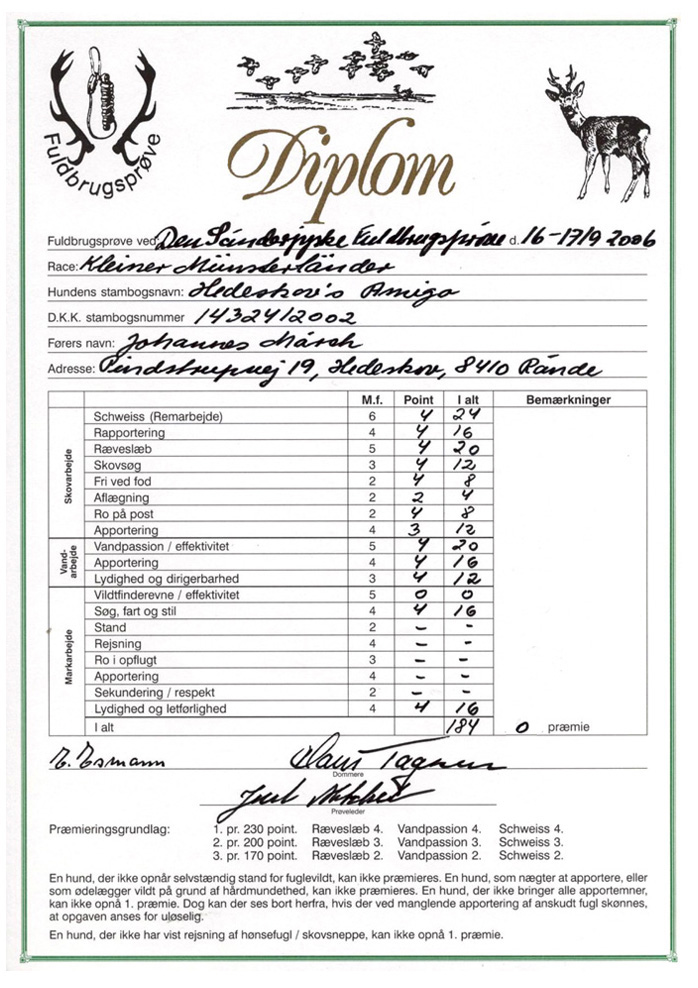 Fuldbrugsprøve
Diplom
Fuldbrugsprøve ved Den Sønderjyske Fuldbrugsprøve d. 16-17/9 2006
Race: Kleiner Münsterländer
Hundens stambogsnavn: Hedeskov's Amigo
D.K.K. stambogsnummer 14324/2002
Førers navn: Johannes March
Adresse: Pindstrupvej 19, Hedeskov, 8410 Rønde
M.f. Point I alt Bemærkninger
Skovarbejde
Schweiss (Remarbejde) 6 4 24
Rapportering 4 4 16
Ræveslæb 5 4 20
Skovsøg 3 4 12
Fri ved fod 2 4 8
Aflægning 2 2 4
Ro på post 2 4 8
Apportering 4 3 12
Vand-arbejde
Vandpassion / effektivitet 5 4 20
Apportering 4 4 16
Lydighed og dirigerbarhed 3 4 12
Markarbejde
Vildtfinderevne / effektivitet 5 0 0
Søg, fart og stil 4 4 16
Stand 2 - -
Rejsning 4 - -
Ro i opflugt 3 - -
Apportering 4 - -
Sekundering / respekt 2 - -
Lydighed og letførlighed 4 4 16
I alt 184 0 præmie
E. Esmann Claus
Dommere
Prøveleder
Præmieringsgrundlag: 1. pr. 230 point. Ræveslæb 4. Vandpassion 4. Schweiss 4.
2. pr. 200 point. Ræveslæb 3. Vandpassion 3. Schweiss 3.
3. pr. 170 point. Ræveslæb 2. Vandpassion 2. Schweiss 2.
En hund, der ikke opnår selvstændig stand for fuglevildt, kan ikke præmieres. En hund, som nægter at apportere, eller
som ødelægger vildt på grund af hårdmundethed, kan ikke præmieres. En hund, der ikke bringer alle apportemner,
kan ikke opnå 1. præmie. Dog kan der ses bort herfra, hvis der ved manglende apportering af anskudt fugl skønnes,
at opgaven anses for uløselig.
En hund, der ikke har vist rejsning af hønsefugl / skovsneppe, kan ikke opnå 1. præmie.